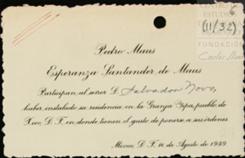 6
(11/32)
FUNDACIÓN
Pedro Maus
Esperanza Santander de Maus
Participan al señor D. Salvador Novo,
haber instalado su residencia en la Granja Pepa, pueblo de
D. F. en donde tienen el gusto de ponerse a sus órdenes
México, D. F. Agosto de 1949